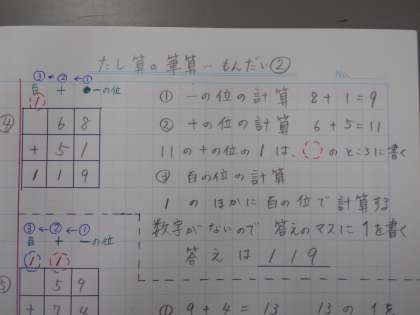 たし算の筆算-もんだい②
No.
③←②←①
百 十 一の位
1
④
68
+51
119
① 一の位の計算 8+1=9
② 十の位の計算 6+5=11
11の十の位の1は、◯のところに書く
③ 百の位の計算
1のほかに百の位で計算する
数字がないので 答えのマスに1を書く
答えは 119
③←②←①
百 十 一の位
1 1
⑤
59
+74
① 9+4=13 13の1を